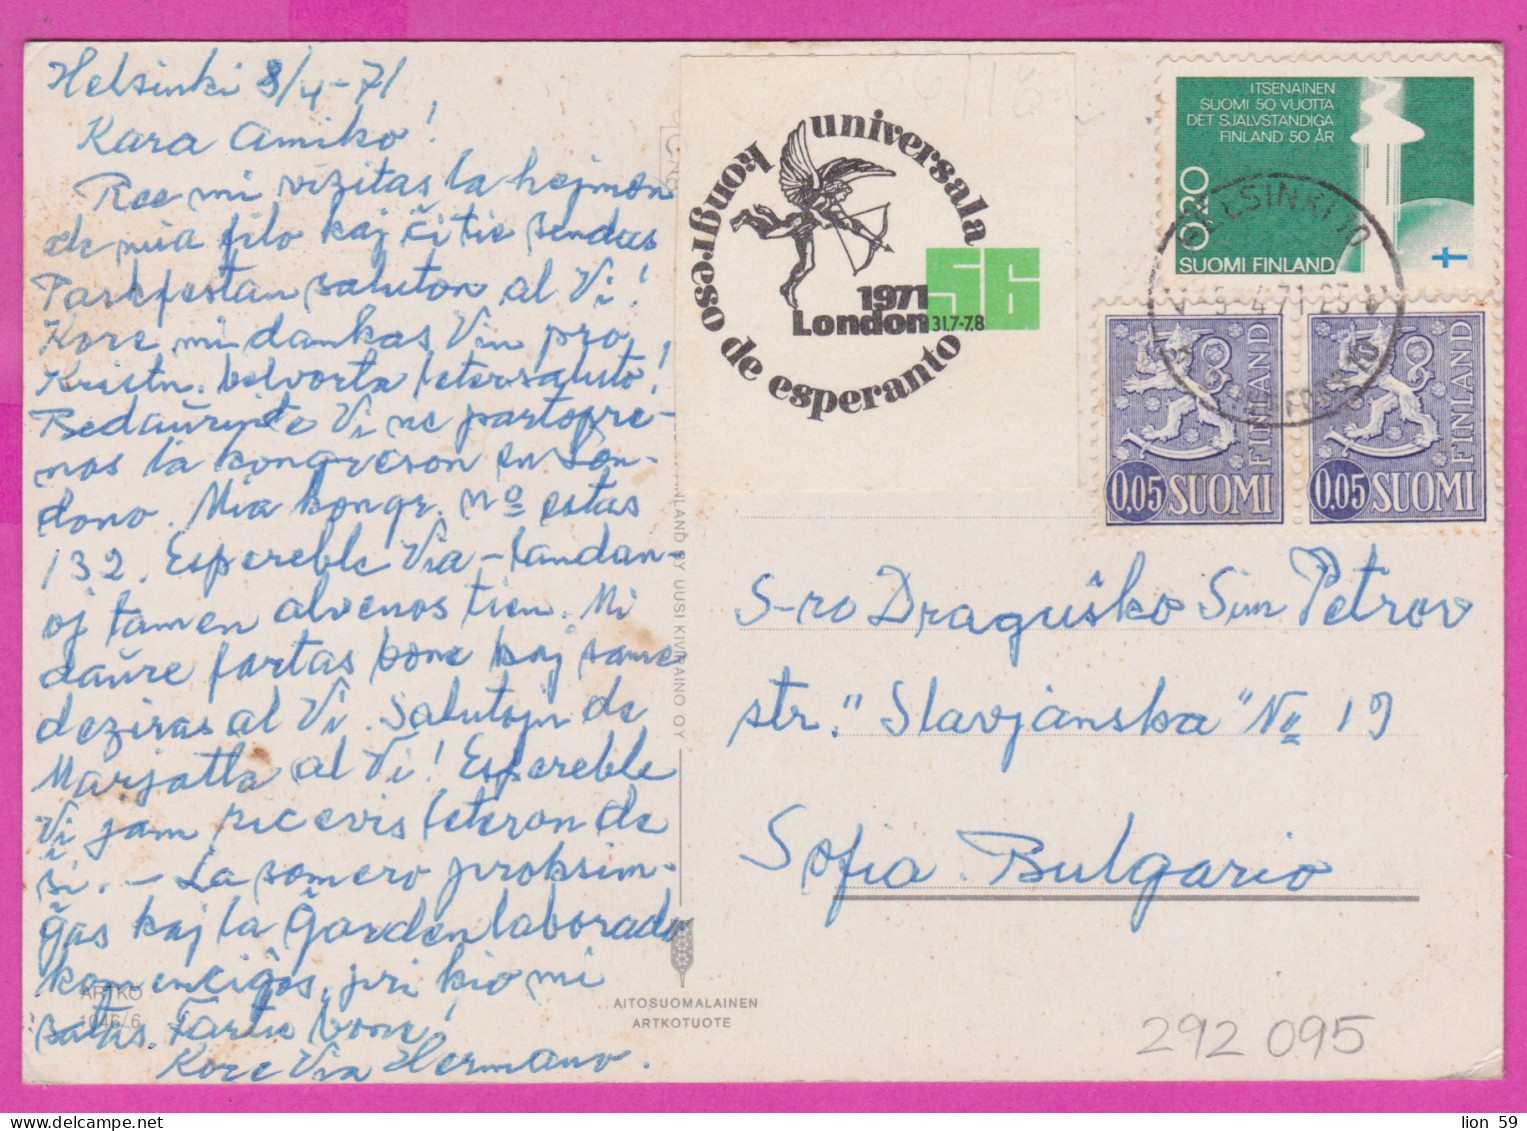 Helsinki 8/4-71
Kara Amiko!
Ree mi vizitas la hejmon
de mia filo kaj ĉi tie sendas
saluton al Vi!
Kore mi dankas Vin pro
Kristn. belvorta letersaluto!
Bedaŭrinde Vi ne partopre-
nos la kongreson en Lon-
dono. Mia kongr. No estas
132. Espereble Via-landan-
oj tamen alvenos tien. Mi
daŭre fartas bone kaj same
deziras al Vi. Salutojn de
Marjatta al Vi! Espereble
Vi jam ricevis leteron de
ŝi. - La somero proksim-
iĝas kaj la ĝardenlaborado
komenciĝas, pri kio mi
ŝatas. Fartu bone!
Kore Via Hermano.
universala
kongreso de esperanto
1971 56
London 31.7-7.8
ITSENAINEN
SUOMI 50 VUOTTA
DET SJALVSTANDIGA
FINLAND 50 ÅR
0,20
SUOMI FINLAND
HELSINKI 10
4.71-23
HELSINGFORS 10
FINLAND
0,05 SUOMI
FINLAND
0,05 SUOMI
S-ro Draguŝko Sim Petrov
str. "Slavjanska" No 19
Sofia. Bulgario
FINLAND BY UUSI KIVIPAINO OY
AITOSUOMALAINEN
ARTKOTUOTE
ARTKO
1046/6
292 095
lion 59